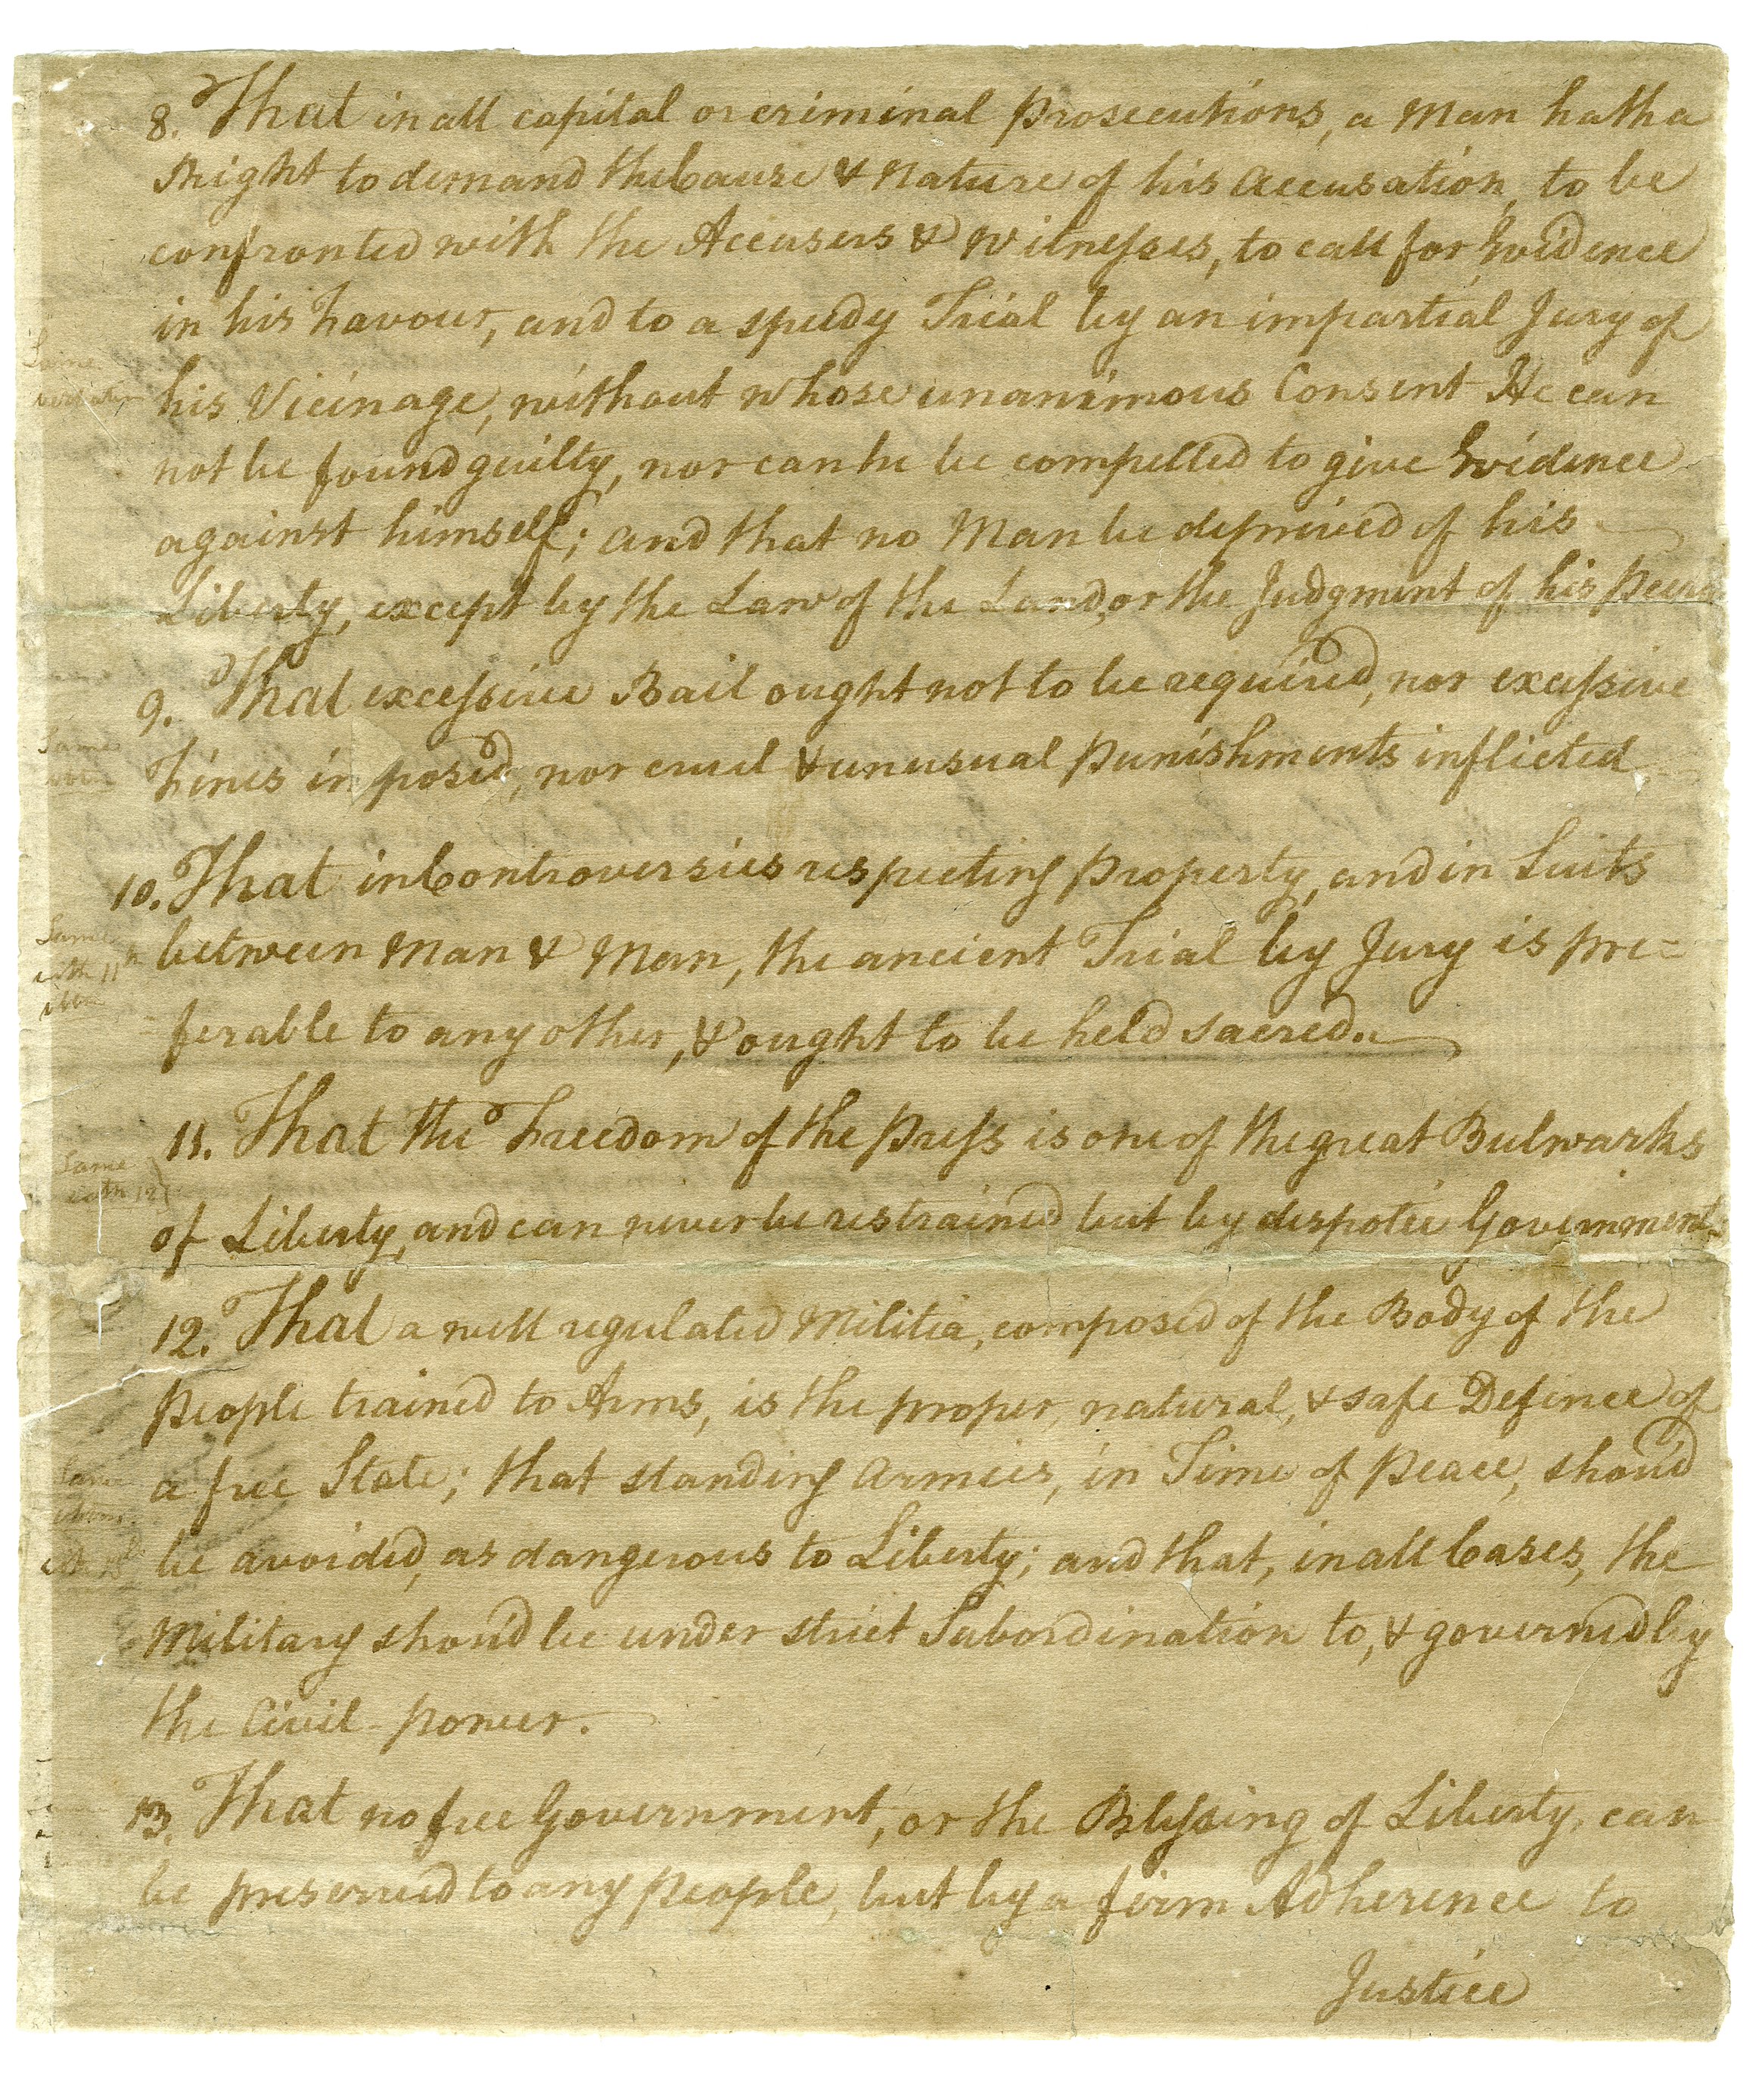 8. That in all capital or criminal Prosecutions, a Man hath a
Right to demand the Cause & Nature of his Accusation, to be
confronted with the Accusers & Witnesses, to call for Evidence
in his Favour, and to a speedy Trial by an impartial Jury of
Same
his Vicinage, without whose unanimous Consent He can
not be found guilty, nor can he be compelled to give Evidence
against himself; and that no Man be deprived of his
Liberty, except by the Law of the Land, or the Judgment of his Peers
9. That excessive Bail ought not to be required, nor excessive
Same
Fines imposed, nor cruel & unusual Punishments inflicted
10. That in Controversies respecting Property, and in Suits
Same
between Man & Man, the ancient Trial by Jury is pre=
with 11th
ferable to any other, & ought to be held sacred.
11. That the Freedom of the Press is one of the great Bulwarks
Same
with 12
of Liberty, and can never be restrained but by despotic Government
12. That a well regulated Militia, composed of the Body of the
People trained to Arms, is the proper, natural, & safe Defence of
a free State; that standing Armies, in Time of Peace, shou'd
Same
be avoided, as dangerous to Liberty; and that, in all Cases, the
Military shou'd be under strict Subordination to, & governed by
the Civil power.
13. That no free Government, or the Blessing of Liberty, can
be preserved to any People, but by a firm Adherence to
Justice